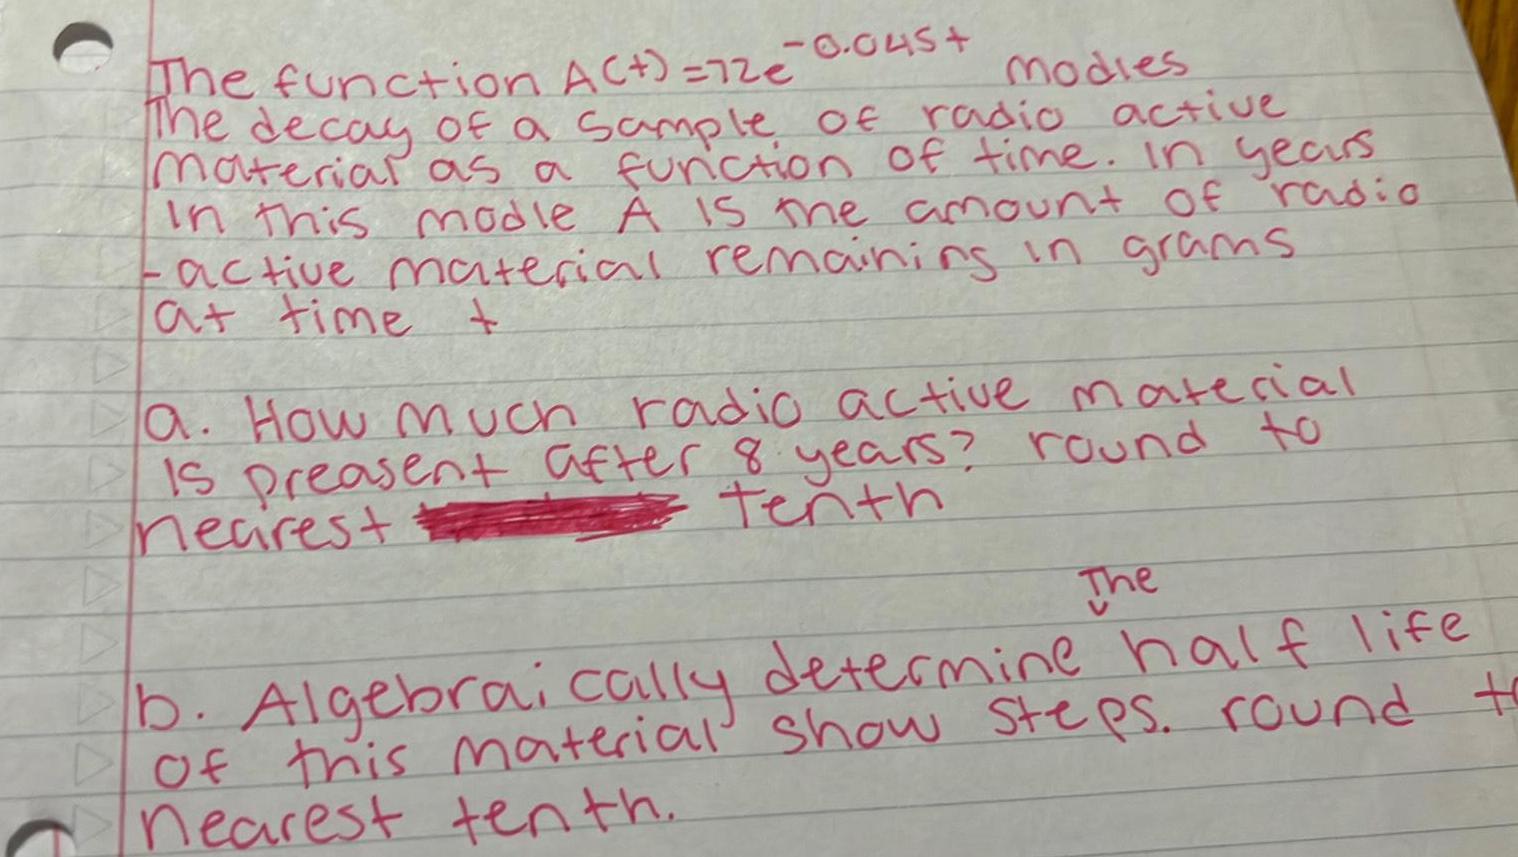 The function A(t) = 72e^-0.045t modles
The decay of a sample of radio active
material as a function of time. In years
In this modle A is the amount of radio
- active material remaining in grams
at time t
a. How much radio active material
is preasent after 8 years? round to
nearest tenth
The
b. Algebraically determine half life
of this material show steps. round to
nearest tenth.